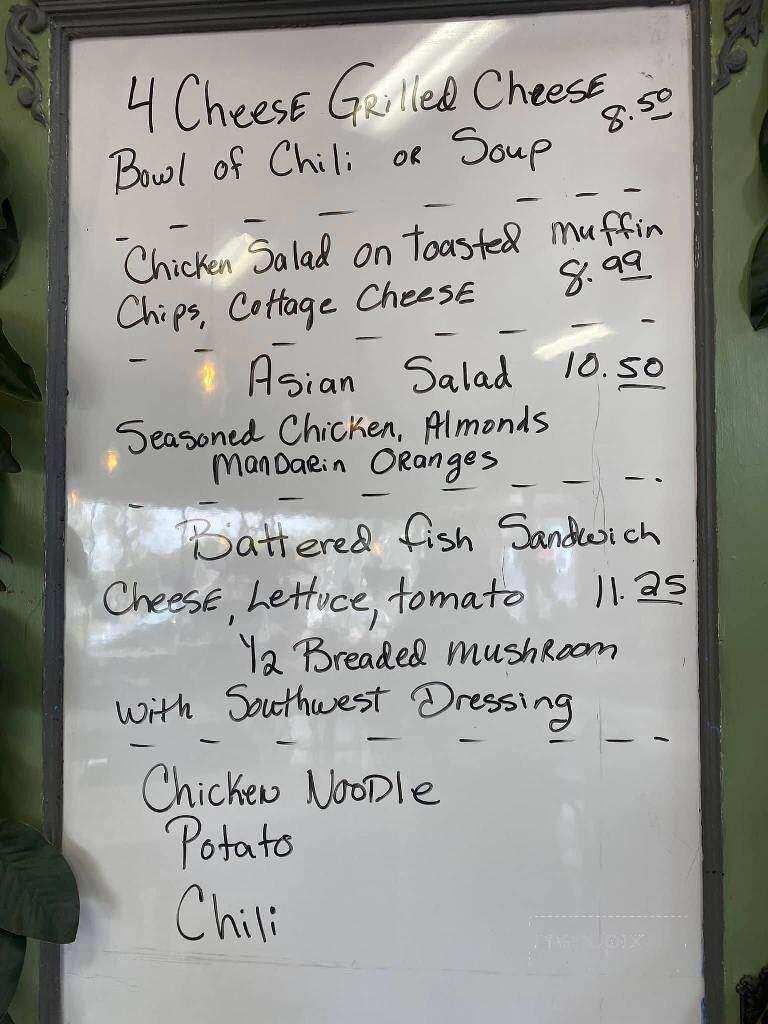 4 Cheese Grilled Cheese 8.50
Bowl of Chili or Soup
Chicken Salad on toasted muffin
Chips, Cottage Cheese 8.99
Asian Salad 10.50
Seasoned Chicken, Almonds
Mandarin Oranges
Battered fish Sandwich
Cheese, Lettuce, tomato 11.25
1/2 Breaded mushroom
with Southwest Dressing
Chicken Noodle
Potato
Chili